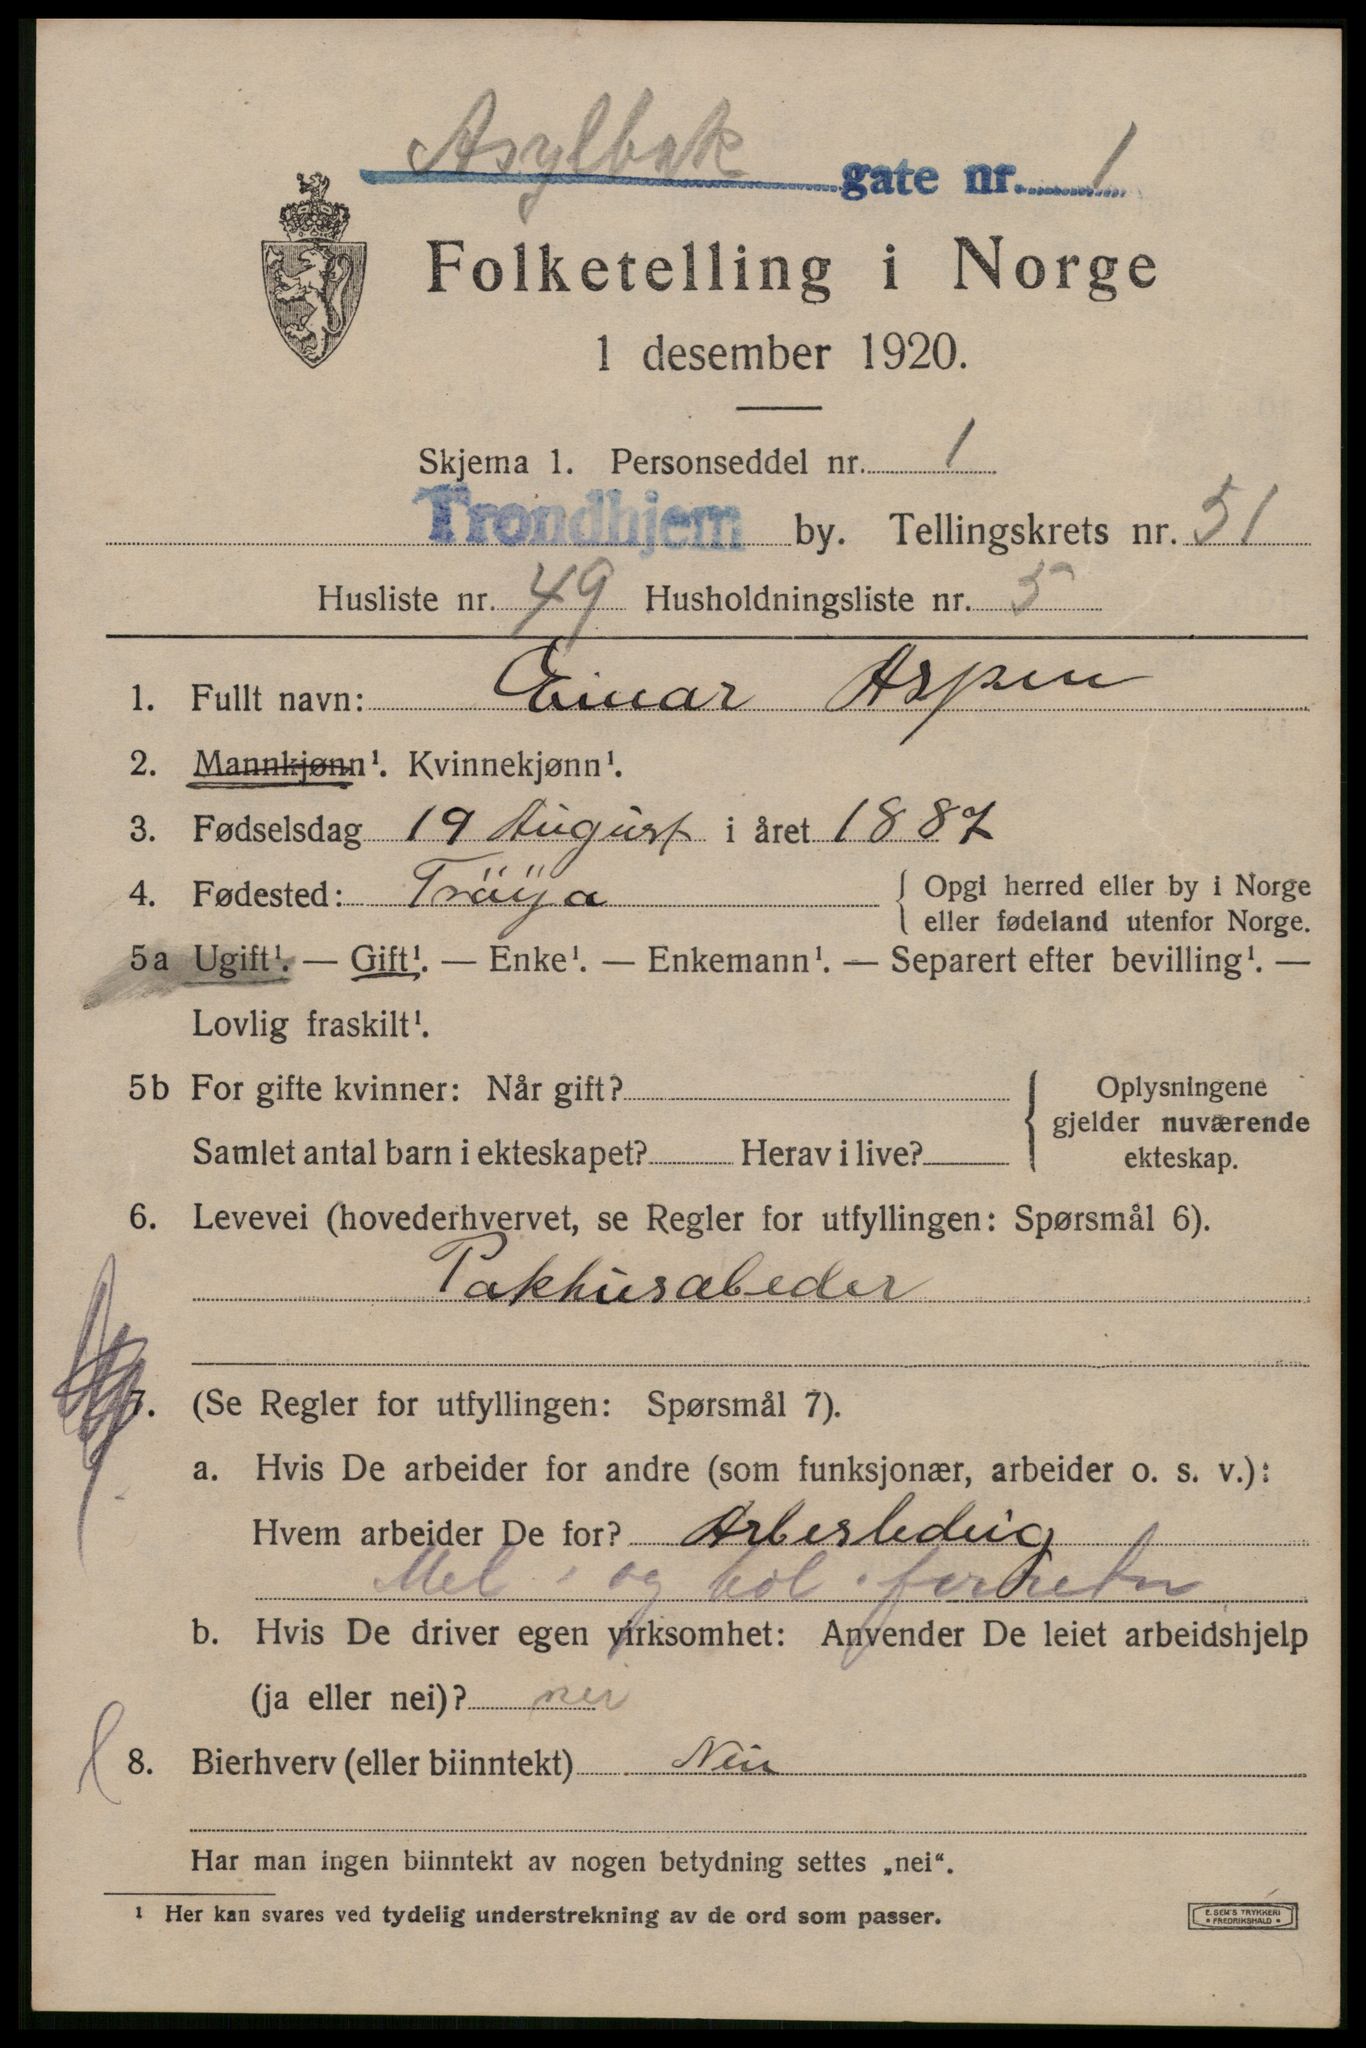 Asylbak gate nr. 1
Folketelling i Norge
1 desember 1920.
Skjema 1. Personseddel nr. 1
Trondhjem by. Tellingskrets nr. 51
Husliste nr. 49 Husholdningsliste nr. 5
1. Fullt navn: Einar Aspen
2. Mannkjønn¹. Kvinnekjønn¹.
3. Fødselsdag 19 August i året 1887
4. Fødested: Tröya { Opgi herred eller by i Norge
eller fødeland utenfor Norge.
5a Ugift¹. — Gift¹. — Enke¹. — Enkemann¹. — Separert efter bevilling¹. —
Lovlig fraskilt¹.
5b For gifte kvinner: Når gift? { Oplysningene
gjelder nuværende
Samlet antal barn i ekteskapet? Herav i live? ekteskap.
6. Levevei (hovederhvervet, se Regler for utfyllingen: Spørsmål 6).
Pakhusabeder
7. (Se Regler for utfyllingen: Spørsmål 7).
a. Hvis De arbeider for andre (som funksjonær, arbeider o. s. v.):
Hvem arbeider De for? Arbesledig
Mel og
b. Hvis De driver egen virksomhet: Anvender De leiet arbeidshjelp
(ja eller nei)? nei
8. Bierhverv (eller biinntekt) Nei
Har man ingen biinntekt av nogen betydning settes „nei“.
¹ Her kan svares ved tydelig understrekning av de ord som passer.
E. SEM'S TRYKKERI
FREDRIKSHALD